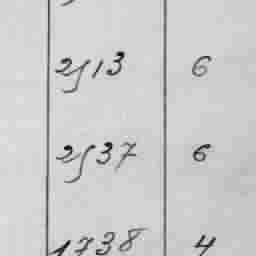 2513 6
2537 6
1738 4